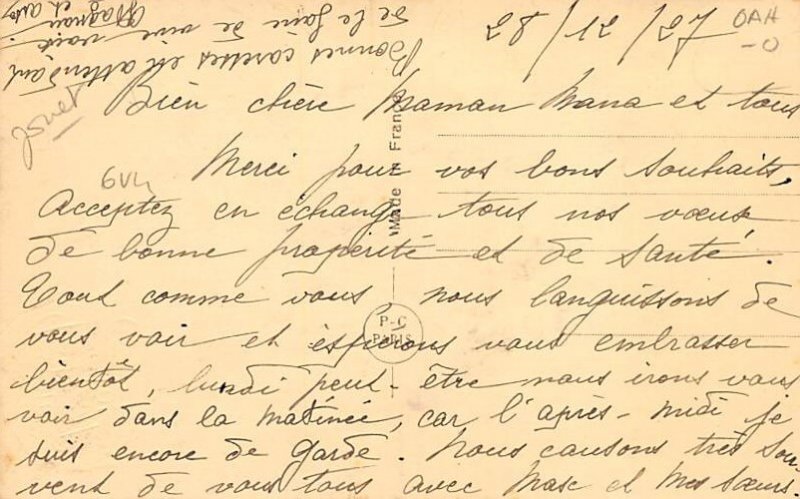 28/12/27
Bien chère Maman Nana et tous
Merci pour vos bons souhaits,
Acceptez en échange tous nos vœux
de bonne propérité et de santé.
Tout comme vous, nous languissons de
vous voir et espérons vous embrasser
bientôt, lundi peut-être nous irons vous
voir dans la matinée, car l'après-midi je
suis encore de garde. Nous causons très sou-
vent de vous tous avec Masc et Mes sœurs
Bonnes caresses en attendant
de le faire de vive voix
Magnan et
Jouet
Made in France
P-C
PARIS